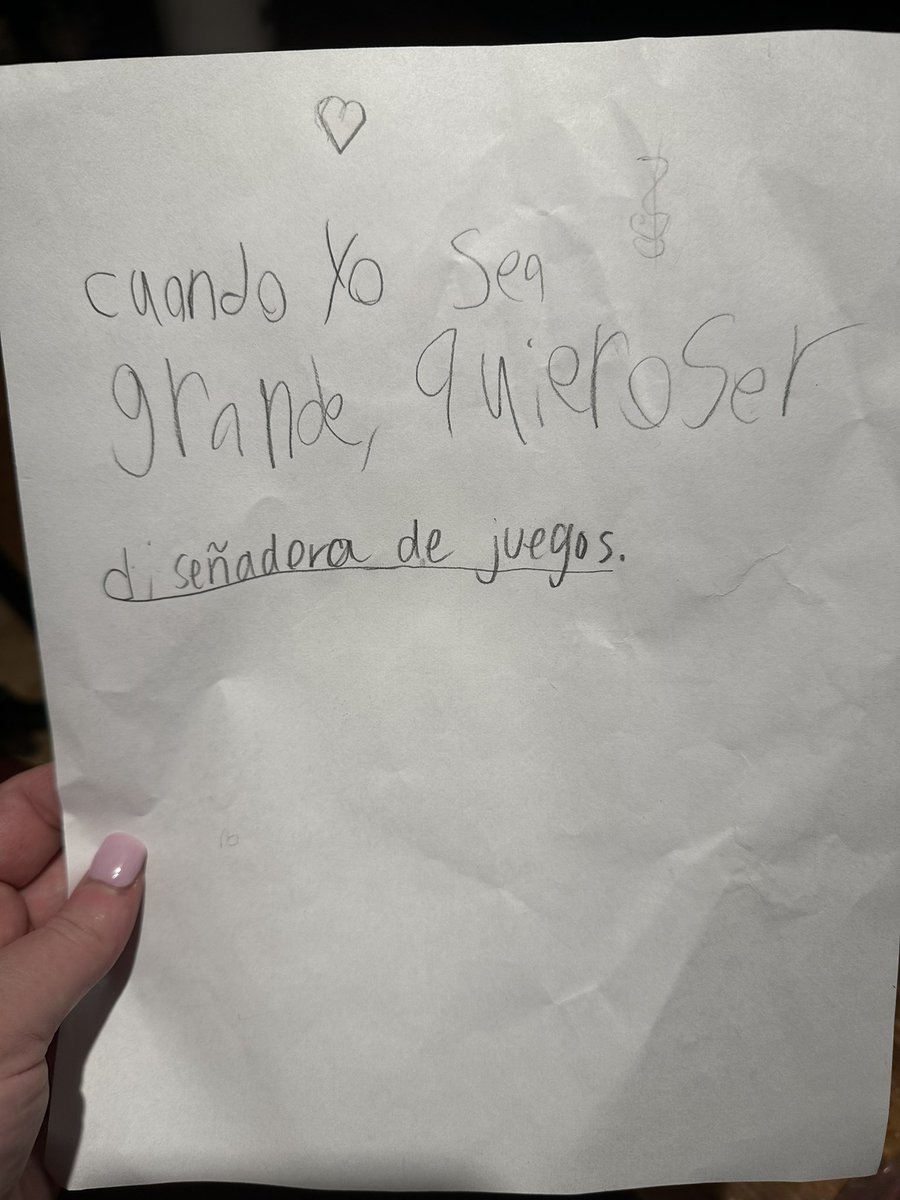 cuando Yo sea
grande, quiero ser
diseñadora de juegos.